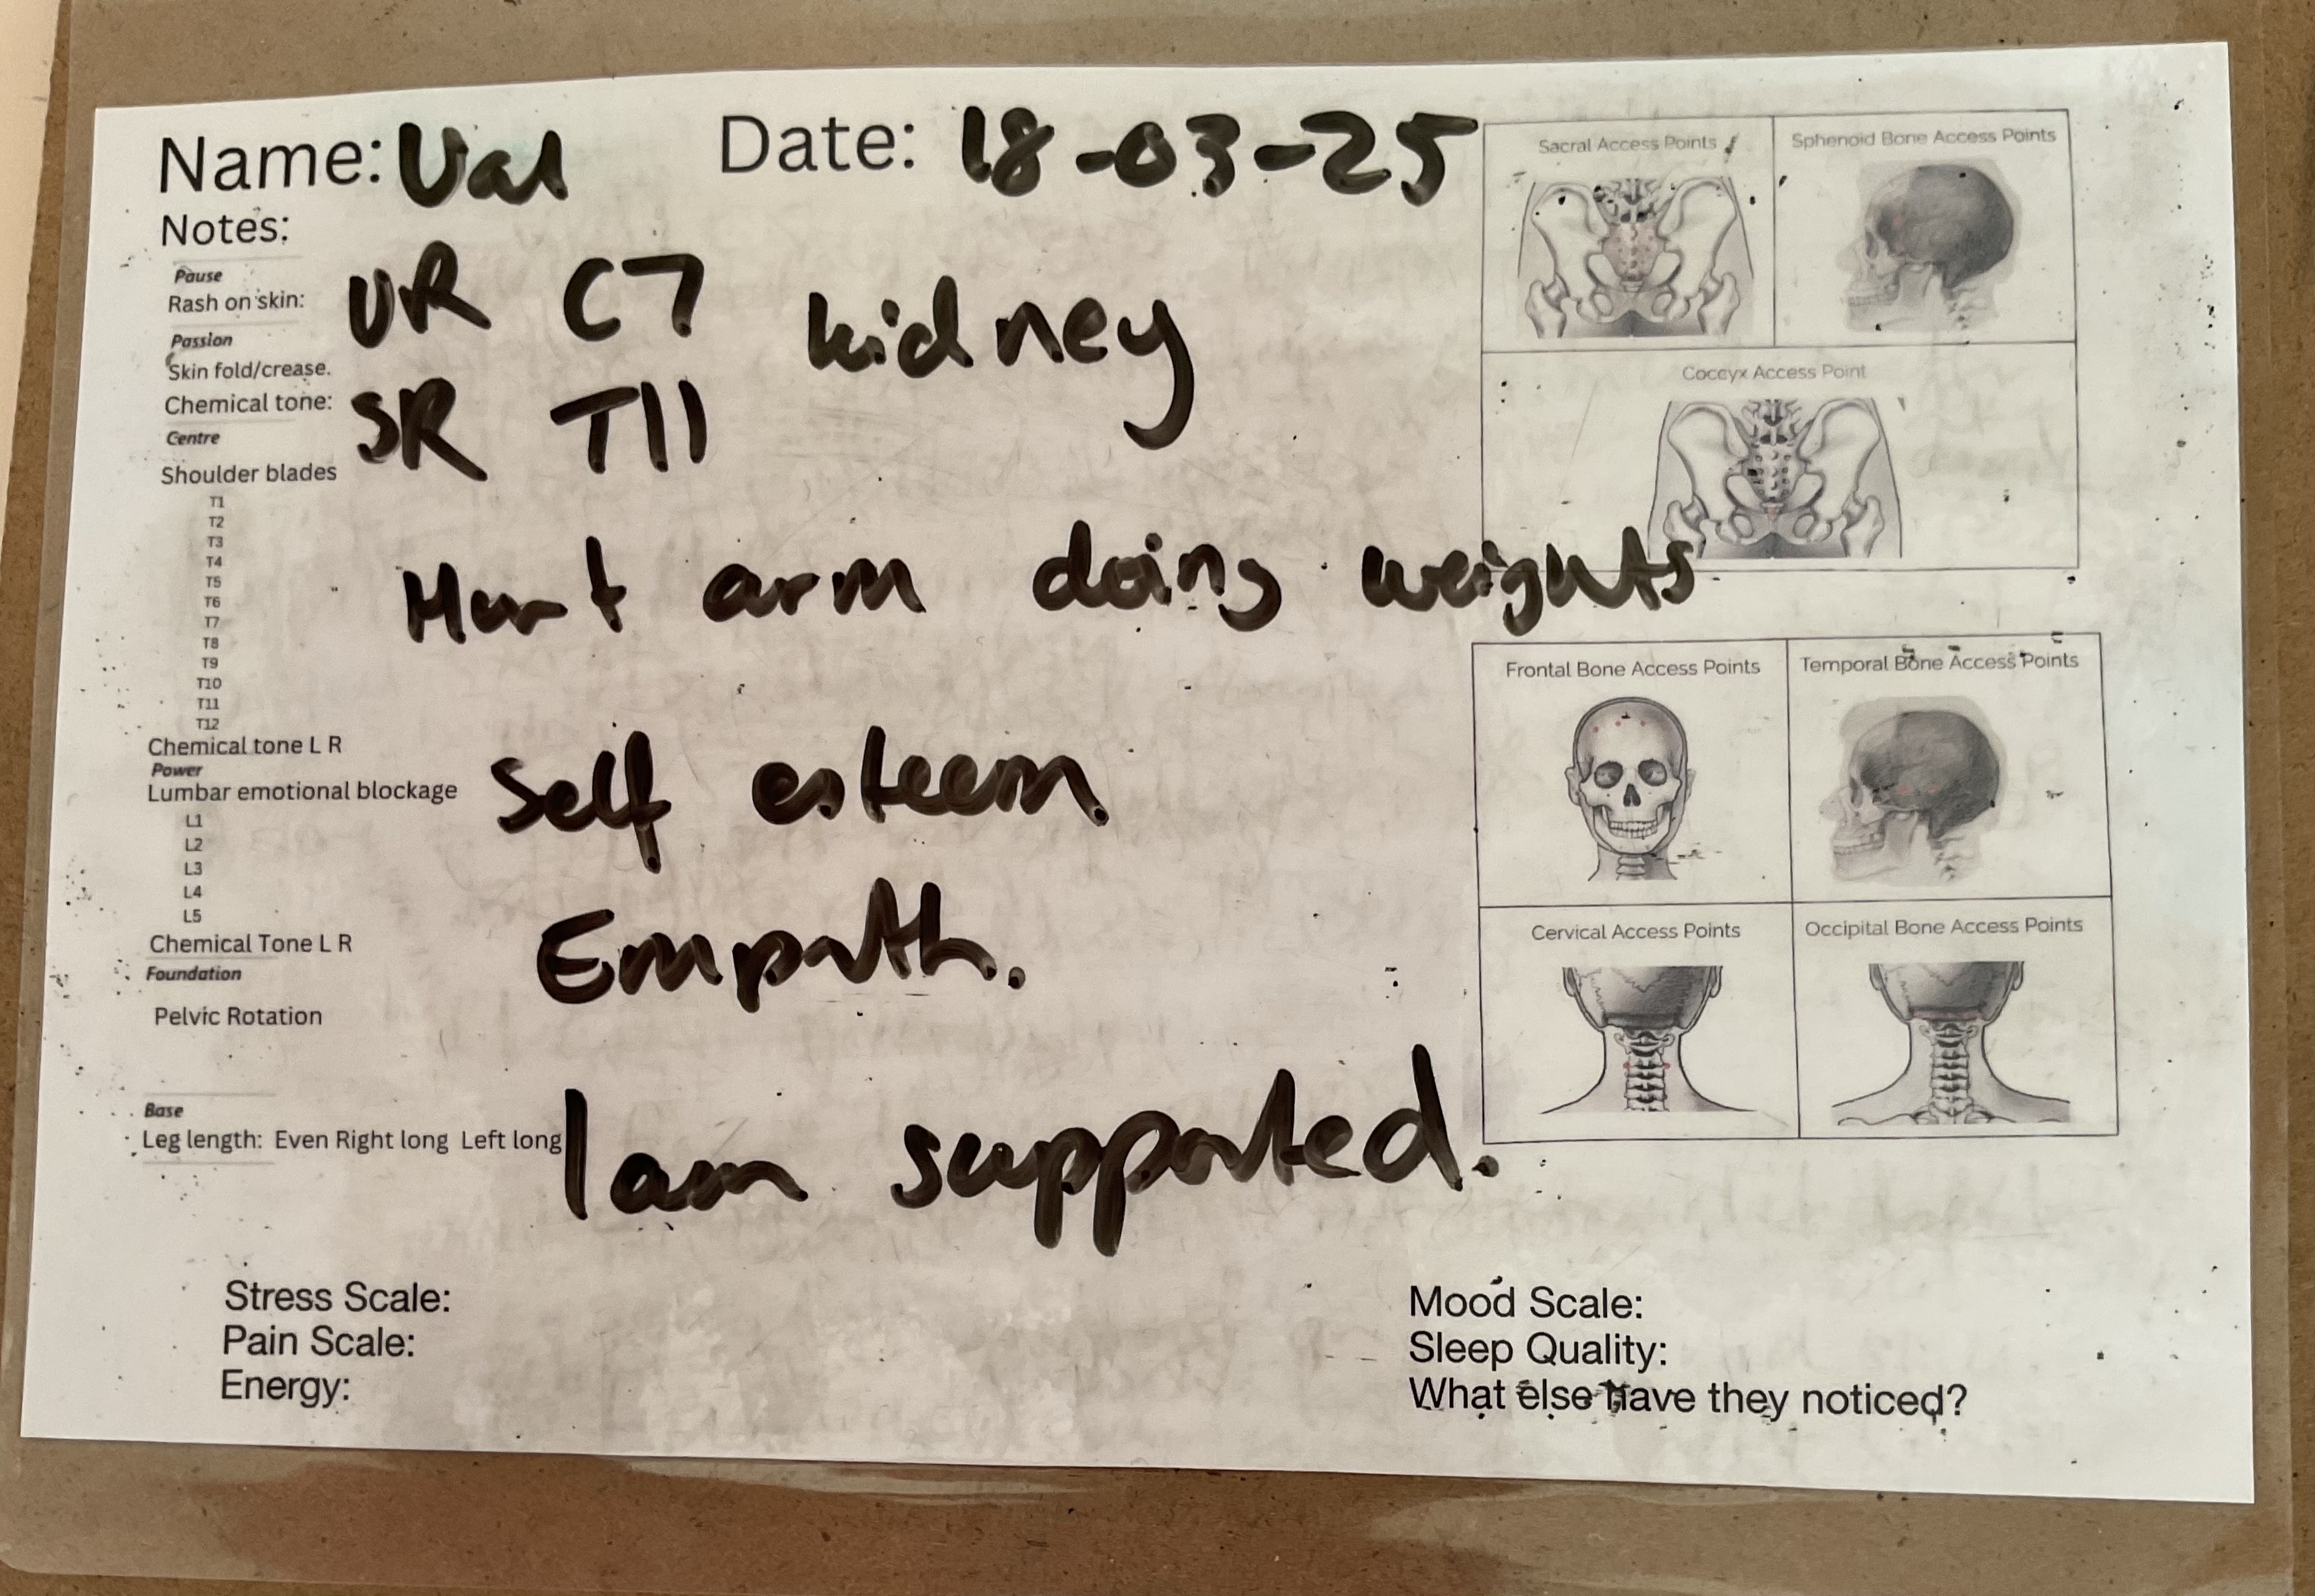 Name: Val Date: 18-03-25
Notes:
Pause
Rash on skin: UR C7 kidney
Passion
Skin fold/crease.
Chemical tone: SR T11
Centre
Shoulder blades
T1
T2
T3
T4
T5
T6
T7
T8
T9
T10
T11
T12
Hurt arm doing weights
Chemical tone L R
Power
Lumbar emotional blockage
L1
L2
L3
L4
L5
Self esteem
Chemical Tone L R
Foundation
Empath.
Pelvic Rotation
Base
Leg length: Even Right long Left long
I am supported.
Sacral Access Points
Sphenoid Bone Access Points
Coccyx Access Point
Frontal Bone Access Points
Temporal Bone Access Points
Cervical Access Points
Occipital Bone Access Points
Stress Scale:
Pain Scale:
Energy:
Mood Scale:
Sleep Quality:
What else have they noticed?